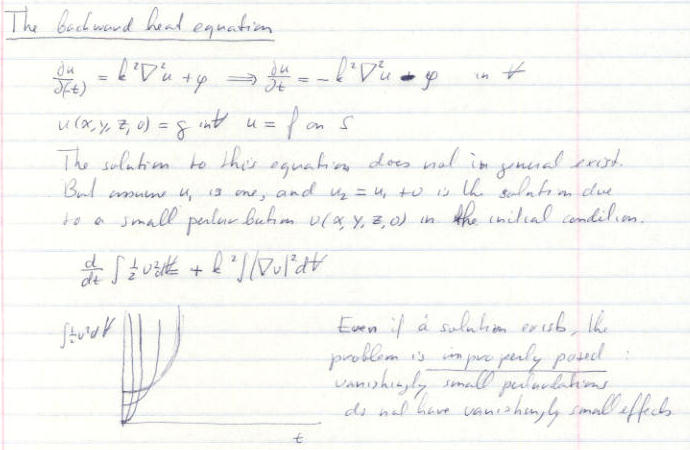 The backward heat equation
∂u/∂(-t) = k²∇²u + φ ⟹ ∂u/∂t = -k²∇²u - φ in V
u(x, y, z, 0) = g in V u = f on S
The solution to this equation does not in general exist.
But assume u₁ is one, and u₂ = u₁ + v is the solution due
to a small perturbution v(x, y, z, 0) in the initial condition.
d/dt ∫ ½ v² dV + k² ∫ |∇v|² dV
∫½v²dV
Even if a solution exists, the
problem is improperly posed :
vanishingly small perturbations
do not have vanishingly small effects
t